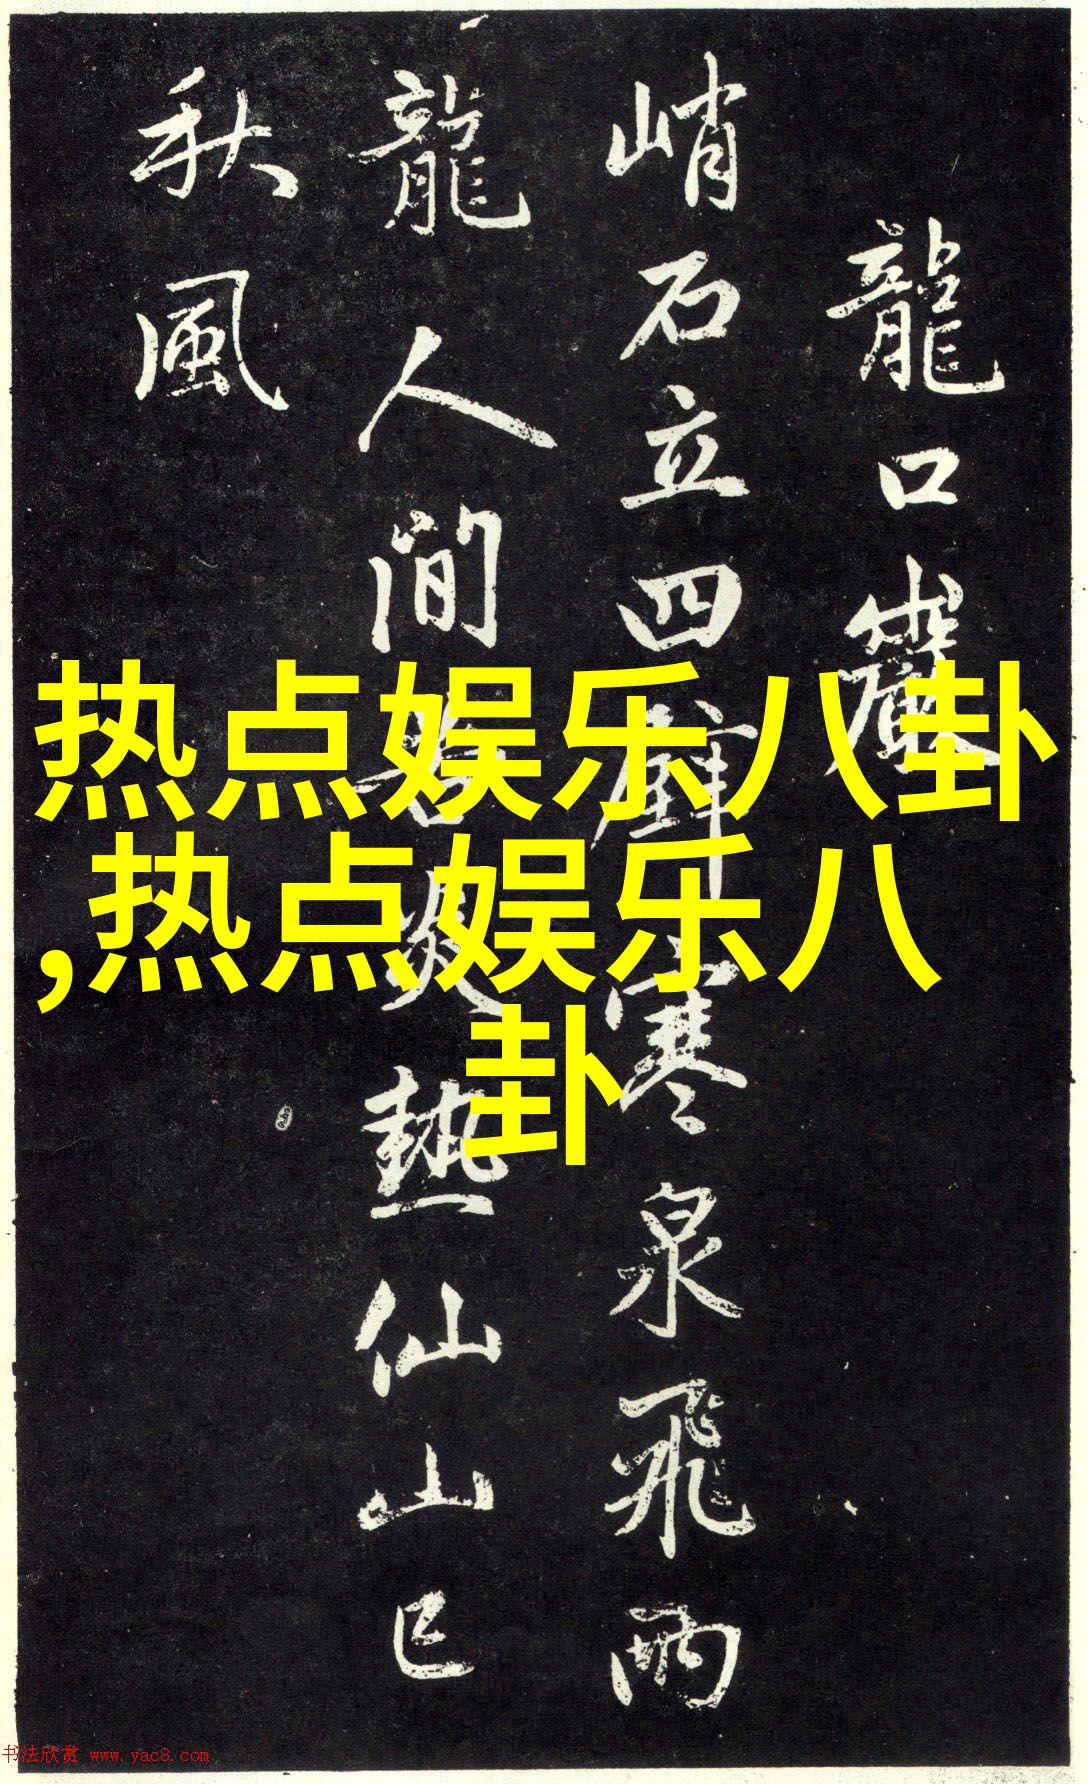 龍口巖
峭石立四壁寒泉飛兩
龍人間苦炎熱仙山已
秋風
热点娱乐八卦
,热点娱乐八
卦
书法欣赏 www.yac8.com